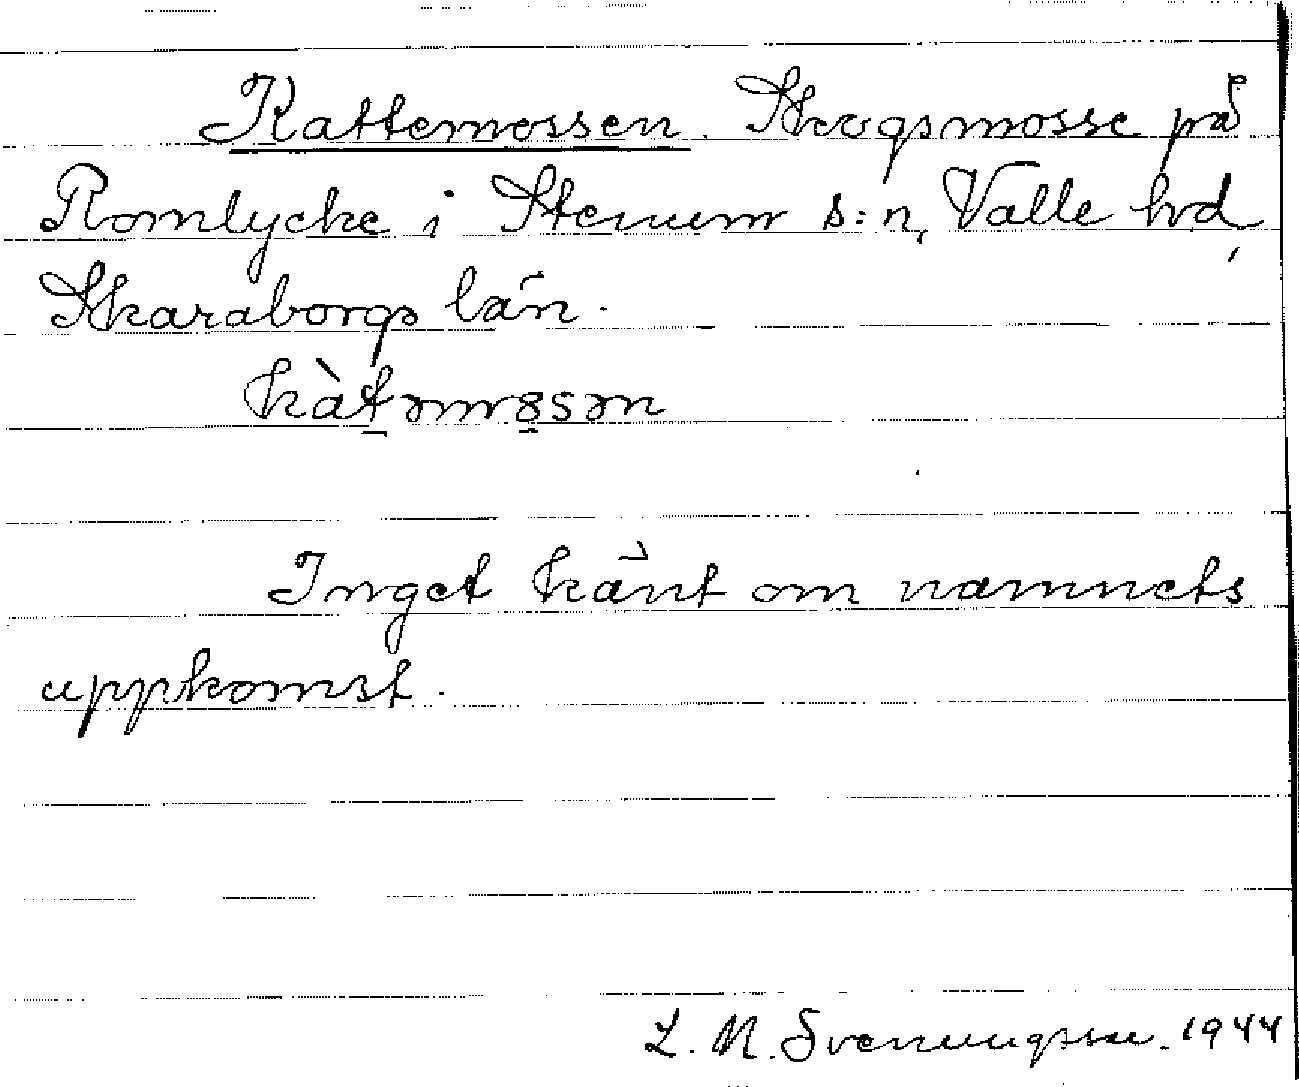 Kattemossen. Skogsmosse på
Romlycke i Stenum s:n, Valle hd,
Skaraborgs län.
kàt̠əmo̠sən
Inget känt om namnets
uppkomst.
L. M. Svenungsson. 1944